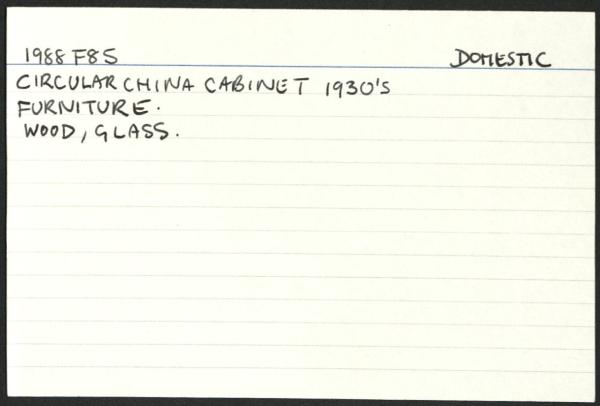 1988 F85 DOMESTIC
CIRCULAR CHINA CABINET 1930'S
FURNITURE.
WOOD, GLASS.